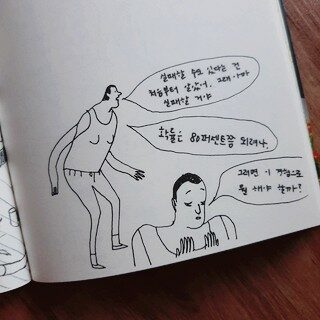 실패할 수도 있다는 건
처음부터 알았어. 그래 아마
실패할 거야
확률은 80퍼센트쯤 되려나.
그러면 이 경험으로
뭘 해야 할까?